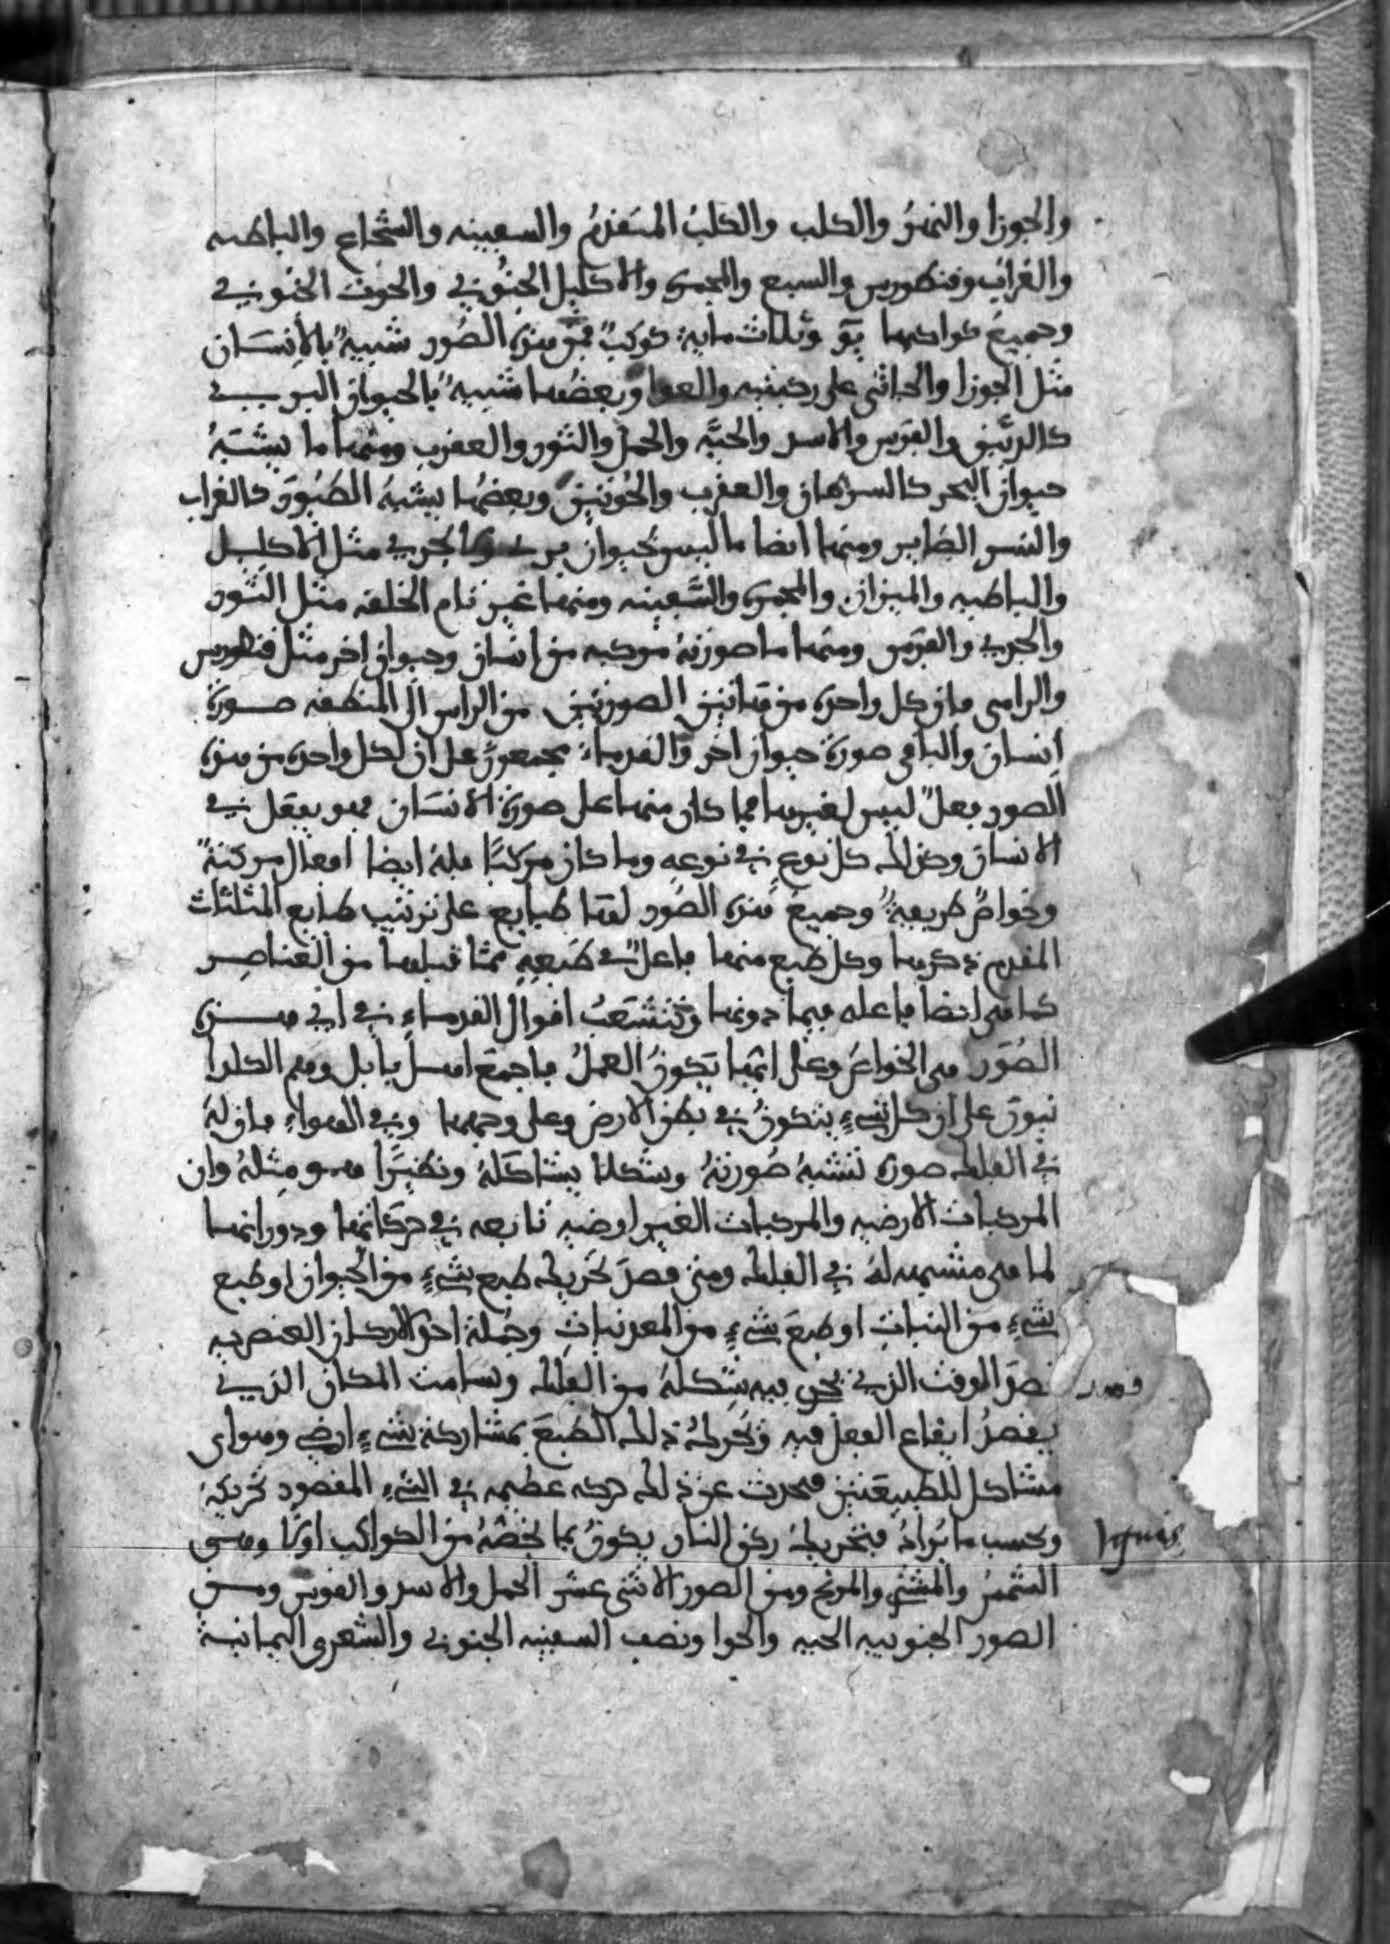 والجوزا والنهر والكلب والكلب المتقدم والسفينه والشجاع والباطيه
والغراب وقنطورس والسبع والمجمرة والاكليل الجنوبي والحوت الجنوبي
وجميع كواكبها وثلاث ماية كوكب فمن هذه الصور شبيه بالانسان
مثل الجوزا والجاثي على ركبتيه والعوا وبعضها شبيه بالحيوان البري
كالدبين والفرس والاسد والحية والحمل والثور والعقرب ومنها ما يشبه
حيوان البحر كالسرطان والعقرب والحوتين وبعضها يشبه الطيور كالغراب
والنسر الطاير ومنها ايضا ما ليس بحيوان بري ولا بحري مثل الاكليل
والباطيه والميزان والمجمرة والسفينه ومنها غير تام الخلقه مثل الثور
والجدي والفرس ومنها ما صورته مركبه من انسان وحيوان اخر مثل قنطورس
والرامي فان كل واحدة من هاتين الصورتين من الراس الى المنطقه صورة
انسان والباقي صورة حيوان اخر والقدماء مجمعون على ان لكل واحدة من هذه
الصور فعلا ليس لغيرها فما كان منها على صورة الانسان فهو يفعل في
الانسان وكذلك كل نوع في نوعه وما كان مركبا فله ايضا افعال مركبة
وخواص طريفية وجميع هذه الصور لها طبايع على ترتيب طبايع المثلثات
المقدم ذكرها وكل طبع منها فاعل في طبعه مما قبلها من العناصر
كما هي ايضا فاعله فيما دونها وتتشعب اقوال القدماء في اي هذه
الصور هي الخواص وعلى ايها يكون العمل فاجمع اهل بابل وهم الكلدا
نيون على ان كل شيء يتكون في بطن الارض وعلى وجهها وفي الهواء فان له
في الفلك صورة تشبه صورته وشكلا يشاكله ونظيرا هو مثله وان
المركبات الارضيه والمركبات الغير ارضيه تابعه في حركاتها ودورانها
لما هي مشبهه له في الفلك ومتى قصد تحريك طبع شيء من الحيوان او طبع
شيء من النبات او طبع شيء من المعدنيات وجملة احد الاركان العنصريه
قصد الوقت الذي فيه شكله من الفلك وسامت المكان الذي
قصد
يقصد ايقاع الفعل فيه وتحرك ذلك الطبع بمشاركة شيء ارضي وهواي
مشاكل للطبيعتين فيحدث عن ذلك حركه عظيمه في الشيء المقصود تحريكه
وبحسب ما نراه فتحريك ركن النار يكون بما يخصه من الكواكب اولا وهي
Ignis
الشمس والمشتري والمريخ ومن الصور الاثني عشر الحمل والاسد والقوس ومن
الصور الجنوبيه الحيه والحوا ونصف السفينه الجنوبي والشعرى اليمانية